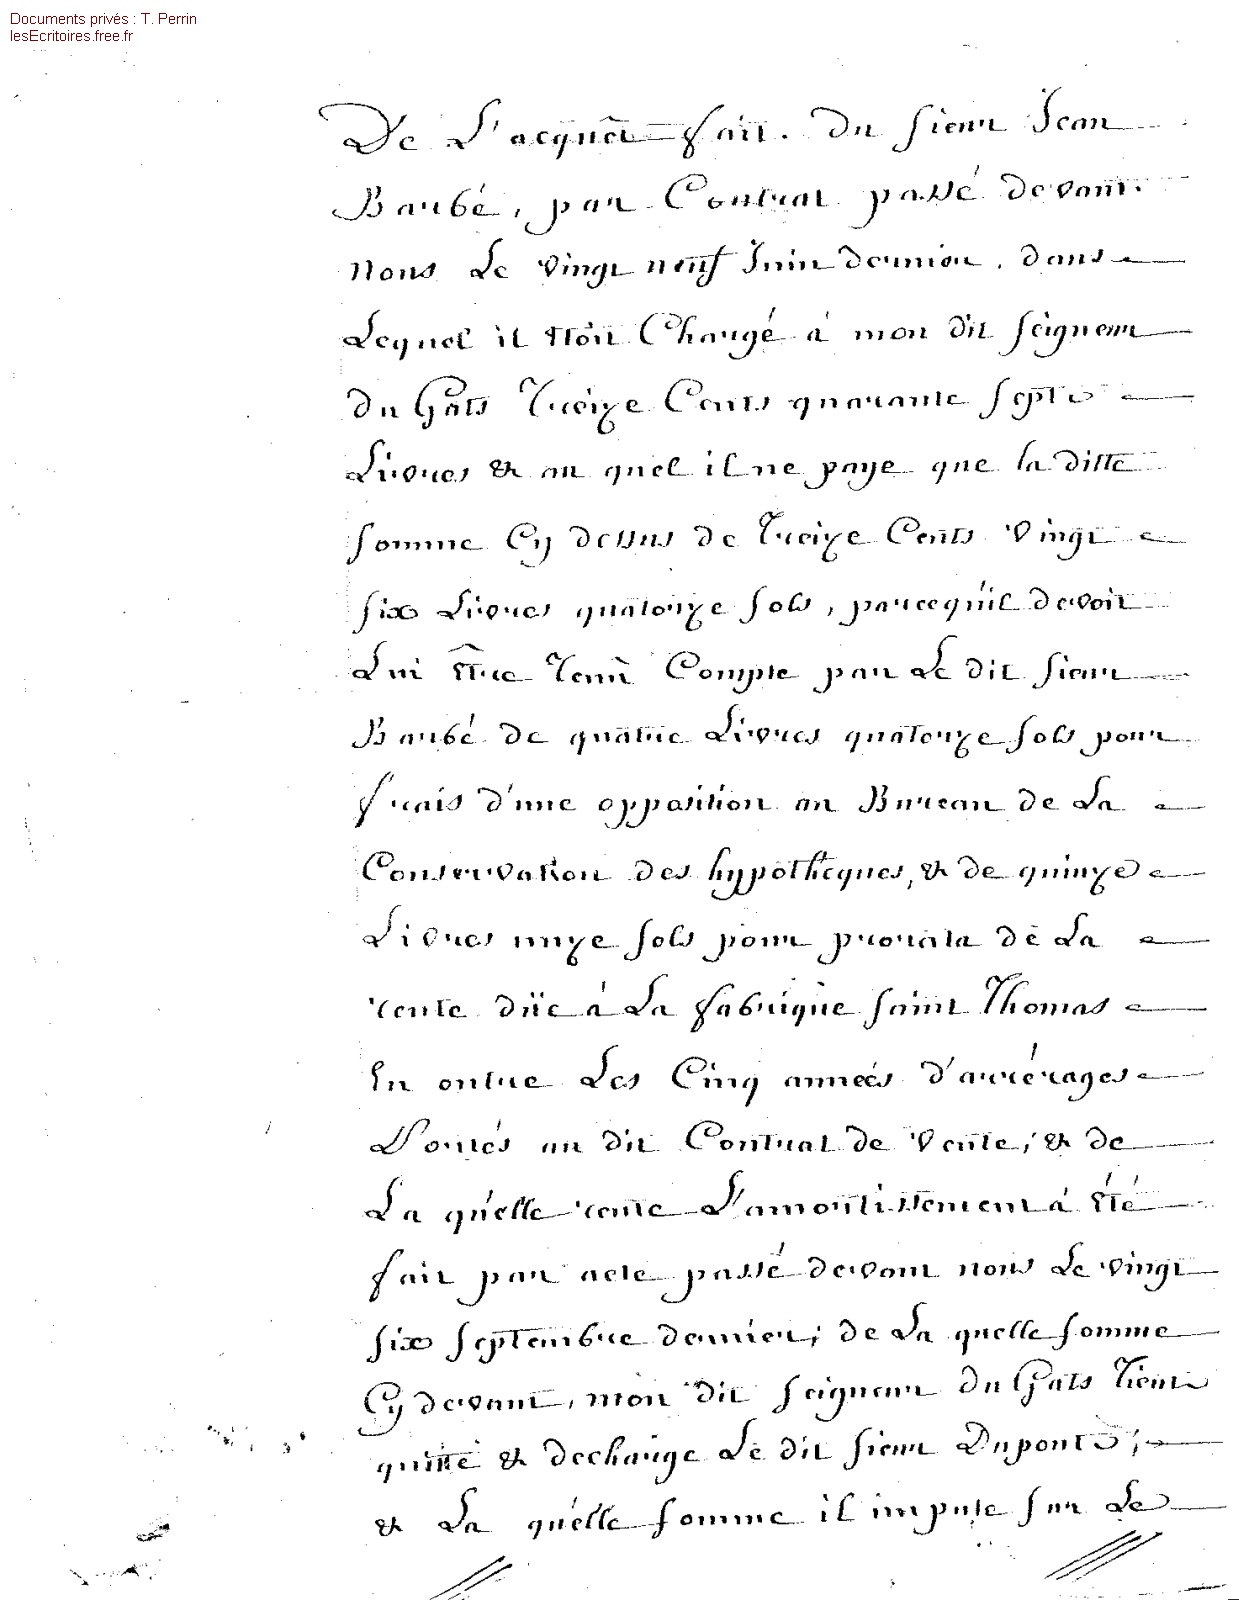 Documents privés : T. Perrin
lesEcritoires.free.fr
De L'acquêt fait. du sieur Jean
Barbé, par Contrat passé devant
nous Le vingt neuf Juin dernier, dans
Lequel il étoit Chargé à mon dit seigneur
du Gats Treize Cents quarante sept
Livres & au quel il ne paye que la ditte
somme Cy dessus de Treize Cents vingt
six Livres quatorze sols, parcequ'il devoit
Lui être Tenu Compte par Le dit sieur
Barbé de quatre Livres quatorze sols pour
frais d'une opposition au Bureau de La
Conservation des hypothèques, & de quinze
Livres unze sols pour prorata de La
rente düe à La fabrique saint Thomas
En outre Les Cinq années d'arrérages
Portés au dit Contrat de vente; & de
La quelle rente L'amortissement a été
fait par acte passé devant nous Le vingt
six septembre dernier; de La quelle somme
Cy devant, mon dit seigneur du Gats Tient
quitte & decharge Le dit sieur Dupont;
& La quelle somme il impute sur Le